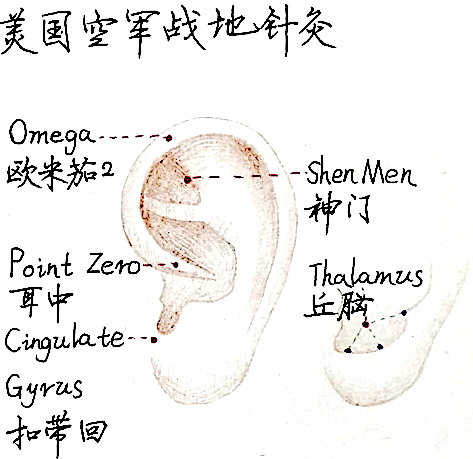 美国空军战地针灸
Omega
欧米茄2
ShenMen
神门
Point Zero
耳中
Thalamus
丘脑
Cingulate
Gyrus
扣带回